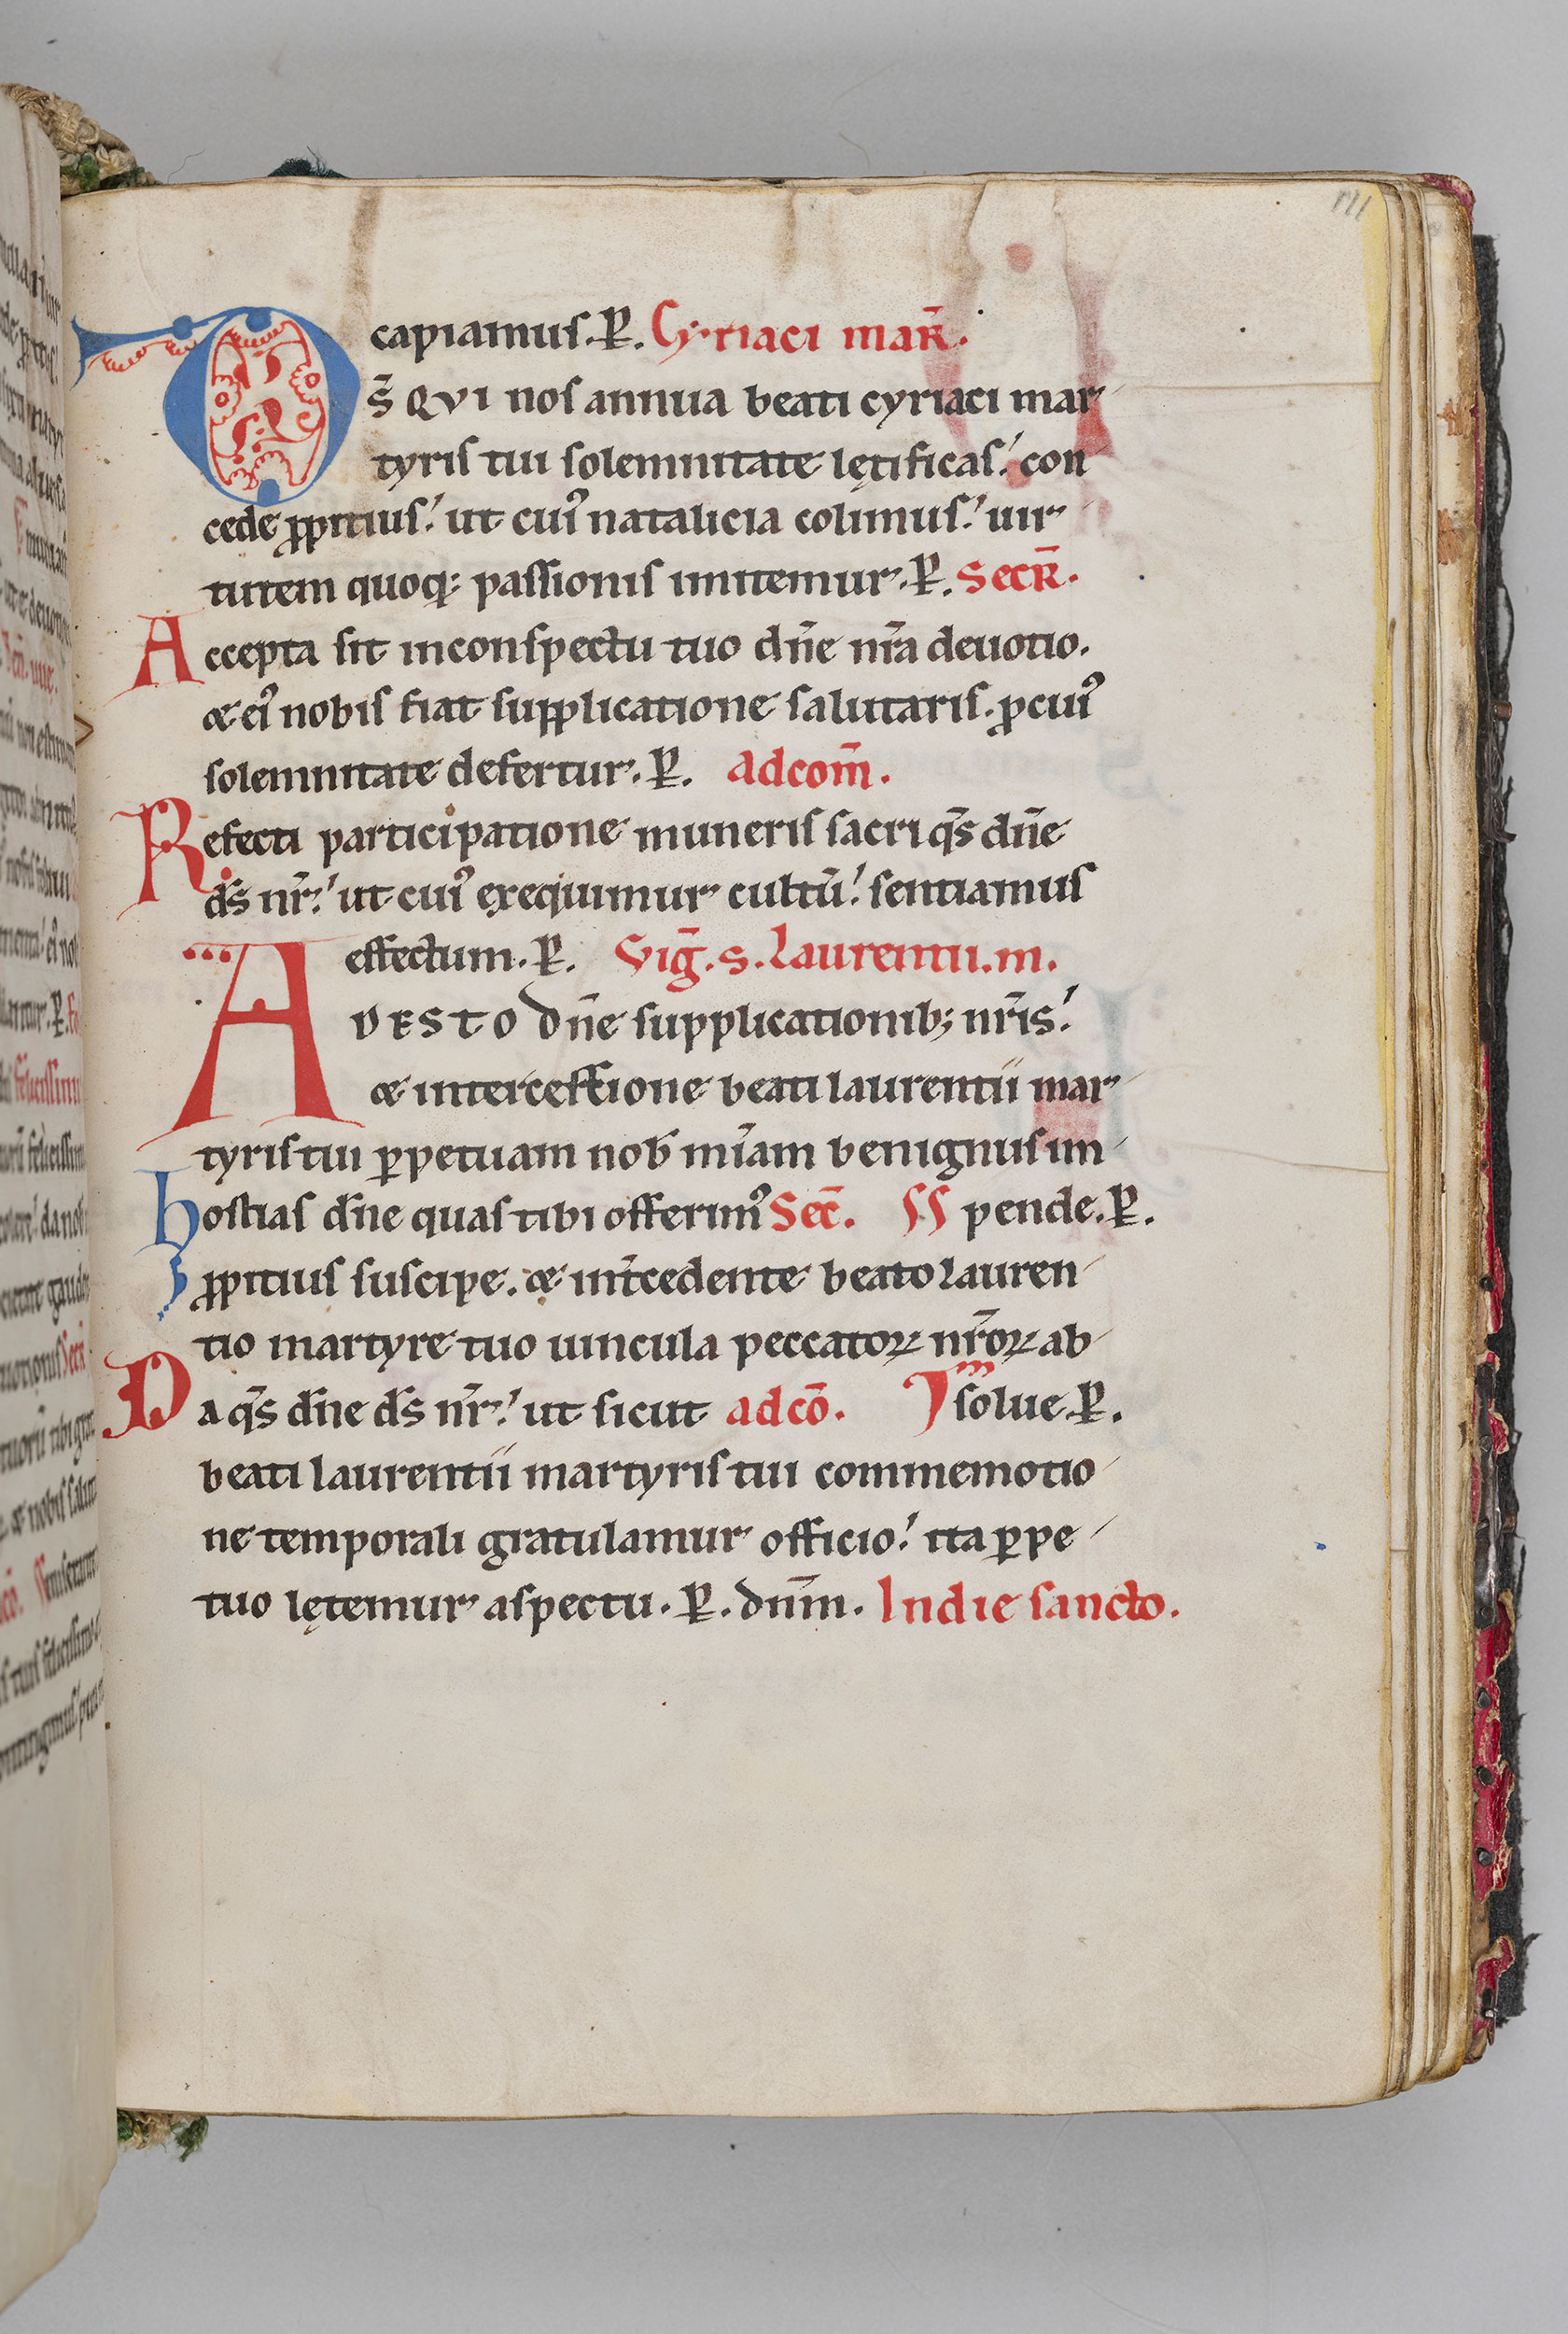 111
capiamus. P̲. Cyriaci mar̄.
Ds̄ QVI nos annua beati cyriaci mar
tyris tui solemnitate lętificas. con
cede ꝓpitius. ut cuiꝰ natalicia colimus. uir
tutem quoq; passionis imitemur. P̲. Secr̄.
Accepta sit inconspectu tuo dn̄e nr̄a deuotio.
& eiꝰ nobis fiat supplicatione salutaris. ꝓ cuiꝰ
solemnitate defertur. P̲. adcom̄.
Refecti participatione muneris sacri qs̄ dn̄e
ds̄ nr̄. ut cuiꝰ exequimur cultū. sentiamus
effectum. P̲. Viḡ. s. Laurentii. m.
ADESTO dn̄e supplicationib; nr̄is.
& intercessione beati laurentii mar
tyris tui ꝑpetuam nob̄ mīam benignus im
hostias dn̄e quas tibi offerimꝰ Sec̄. pende. P̲.
ꝓpitius suscipe. & int̄cedente beato lauren
tio martyre tuo uincula peccatoꝝ nr̄oꝝ ab
Da qs̄ dn̄e ds̄ nr̄. ut sicut ad cō. solue. P̲.
beati laurentii martyris tui commemotio
ne temporali gratulamur officio. ita ꝑpe
tuo lętemur aspectu. P̲. dnm̄. In die sancto.